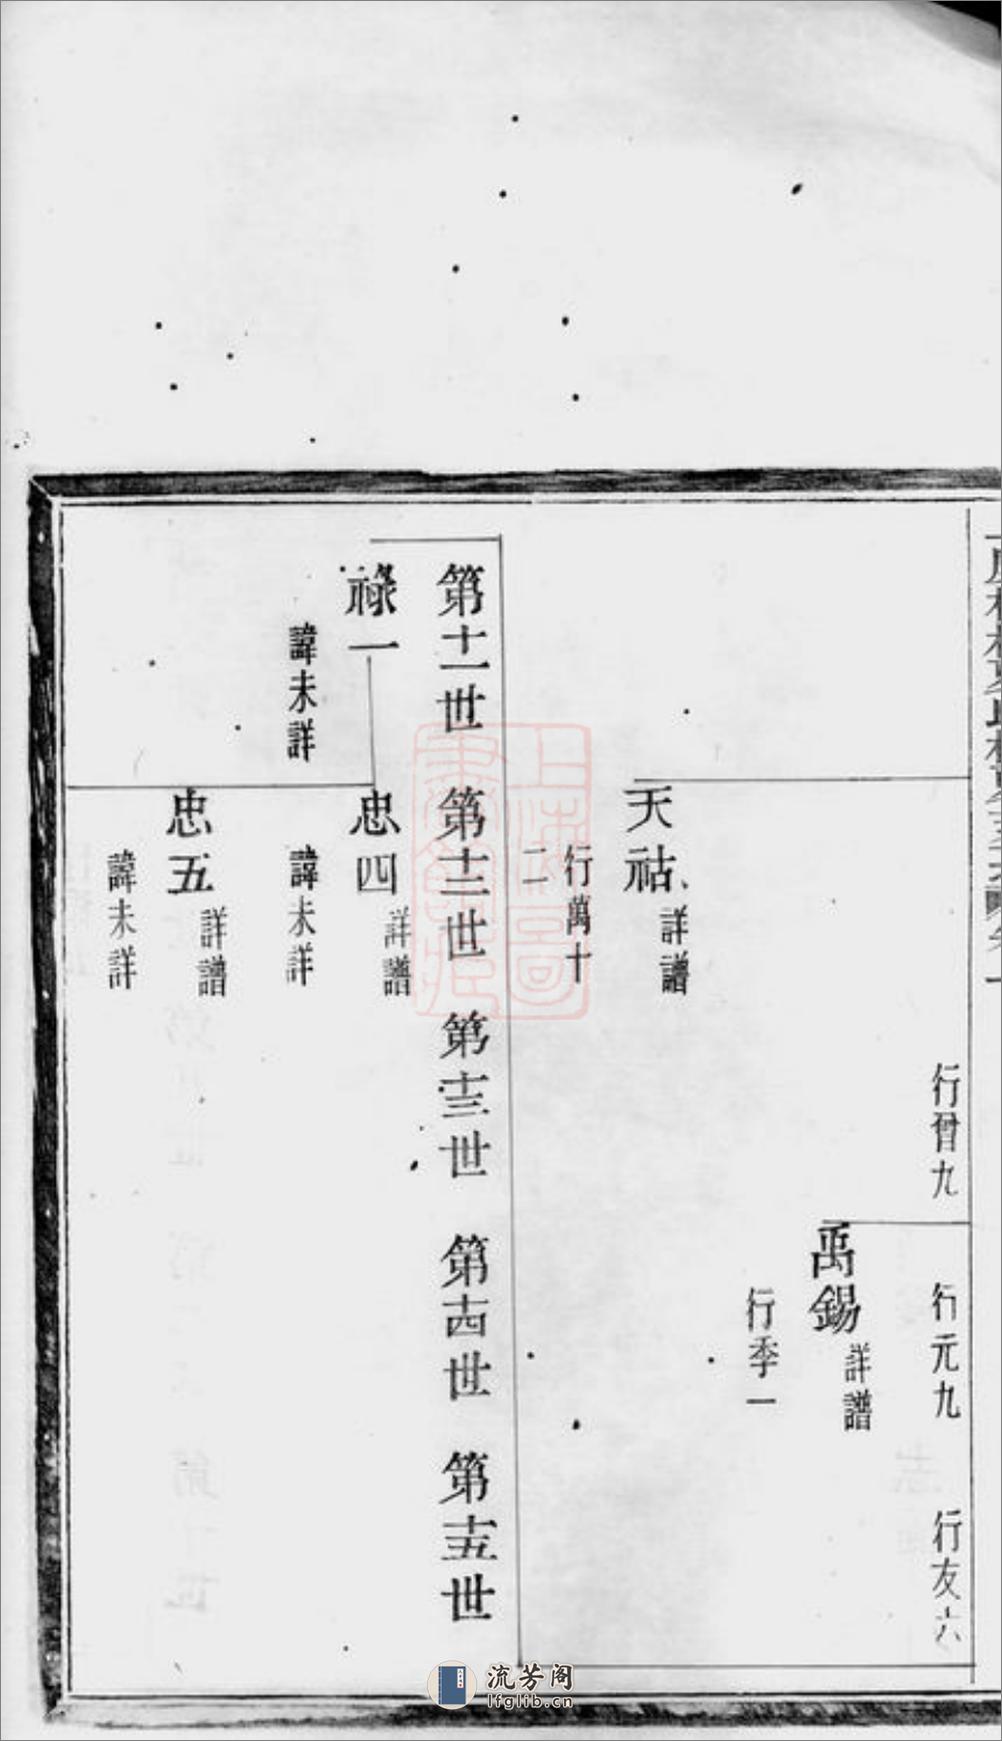 行晉九
行元九
行友六
禹錫
詳譜
行季一
天祜
詳譜
行萬十
二
第十一世 第十二世 第十三世 第十四世 第十五世
祿一
諱未詳
忠四
詳譜
諱未詳
忠五
詳譜
諱未詳
上海圖
書館藏
流芳阁
lfglib.cn